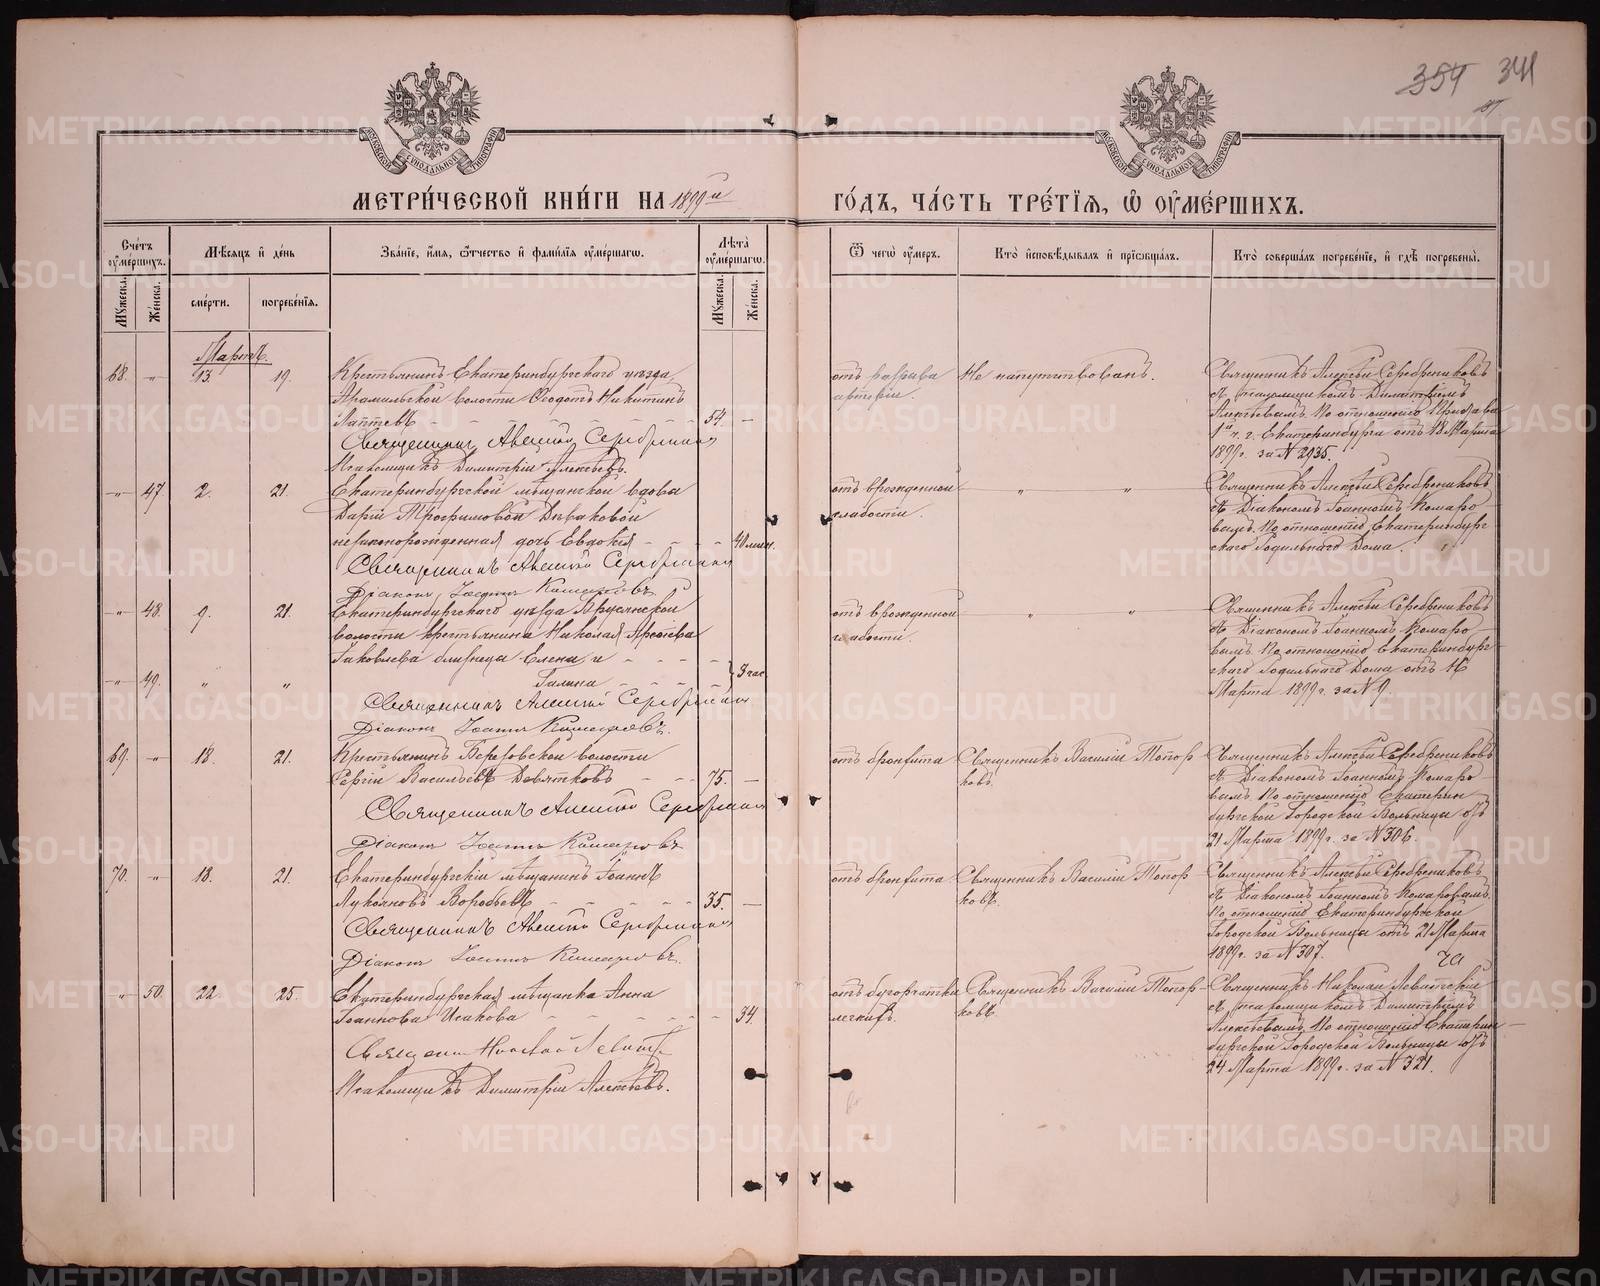 354 341
МЕТРИ́ЧЕСКОЙ КНИ́ГИ НА 1899й ГО́ДЪ, ЧА́СТЬ ТРЕ́ТІѦ, Ѡ ОУМЕ́РШИХЪ.
Сче́тъ оуме́ршихъ.
Мѣ́сяцъ и де́нь
Зва́ніе, и́мѧ, ѻ҆́тчество и фами́лїѧ оуме́ршагѡ.
Лѣ́та оуме́ршагѡ.
Ѿ чегѡ̀ оу́меръ.
Кто̀ исповѣ́дывалъ и прїѡбща́лъ.
Кто̀ соверша́лъ погребе́нїе, и гдѣ̀ погребены̀.
Му́жеска.
Же́нска.
сме́рти.
погребе́нїѧ.
Му́жеска.
Же́нска.
Мартъ.
68. -"- 13. 19. Крестьянинъ Екатеринбургскаго уѣзда,
Арамильской волости Ѳеодотъ Никитинъ
Лаптевъ - - - 54. -
Священникъ Алексій Серебренников
Псаломщикъ Димитрій Алексѣевъ.
отъ разрыва
артеріи.
Не напутствованъ.
Священникъ Алексѣй Серебрениковъ
съ псаломщикомъ Димитріемъ
Алексѣевымъ. По отношенію Пристава
1й ч. г. Екатеринбурга отъ 18 Марта
1899г. за № 2935.
-"- 47. 2. 21. Екатеринбургской мѣщанской вдовы
Даріи Трофимовой
незаконорожденная дочь Евдокія - - - - 40 мин.
Священникъ Алексій Серебренников
Діаконъ Іоаннъ Комаровъ
отъ врожденной
слабости.
" "
Священникъ Алексѣй Серебрениковъ
съ Діакономъ Іоанномъ Комаро-
вымъ. По отношенію Екатеринбург-
скаго Родильнаго Дома.
-"- 48. 9. 21. Екатеринбургскаго уѣзда
волости крестьянина Николая
Яковлева близнецы Елена и - - - -
-"- 49. " " Галина - - - - 3 час.
Священникъ Алексій Серебренников
Діаконъ Іоаннъ Комаровъ.
отъ врожденной
слабости.
" "
Священникъ Алексѣй Серебрениковъ
съ Діакономъ Іоанномъ Комаро-
вымъ. По отношенію Екатеринбург-
скаго Родильнаго Дома отъ
Марта 1899г. за № 9
69. -"- 18. 21. Крестьянинъ Березовской волости
Сергій Васильевъ Девятковъ - - - 75. -
Священникъ Алексій Серебренников
Діаконъ Іоаннъ Комаровъ
отъ бронхита
Священникъ Василій Топор-
ковъ.
Священникъ Алексѣй Серебрениковъ
съ Діакономъ Іоанномъ Комаро-
вымъ. По отношенію Екатерин-
бургской Городской Больницы отъ
21 Марта 1899г. за № 306.
70. -"- 18. 21. Екатеринбургскій мѣщанинъ Іоаннъ
Лукояновъ Воробьевъ - - - - 35. -
Священникъ Алексій Серебренников
Діаконъ Іоаннъ Комаровъ.
отъ бронхита
Священникъ Василій Топор-
ковъ.
Священникъ Алексѣй Серебрениковъ
съ Діакономъ Іоанномъ Комаровымъ.
По отношенію Екатеринбургской
Городской Больницы отъ 21 Марта
1899г. за № 307.
-"- 50. 22. 25. Екатеринбургская мѣщанка Анна
Іоаннова Исакова - - - - - 34.
Священн Николай Левитск
Псаломщикъ Димитрій Алексѣевъ.
отъ бугорчатки
легкихъ.
Священникъ Василій Топор-
ковъ.
Священникъ Николай Левитскій
съ псаломщикомъ Димитріемъ
Алексѣевымъ. По отношенію Екатерин-
бургской Городской Больницы отъ
24 Марта 1899г. за № 321.
METRIKI.GASO-URAL.RU